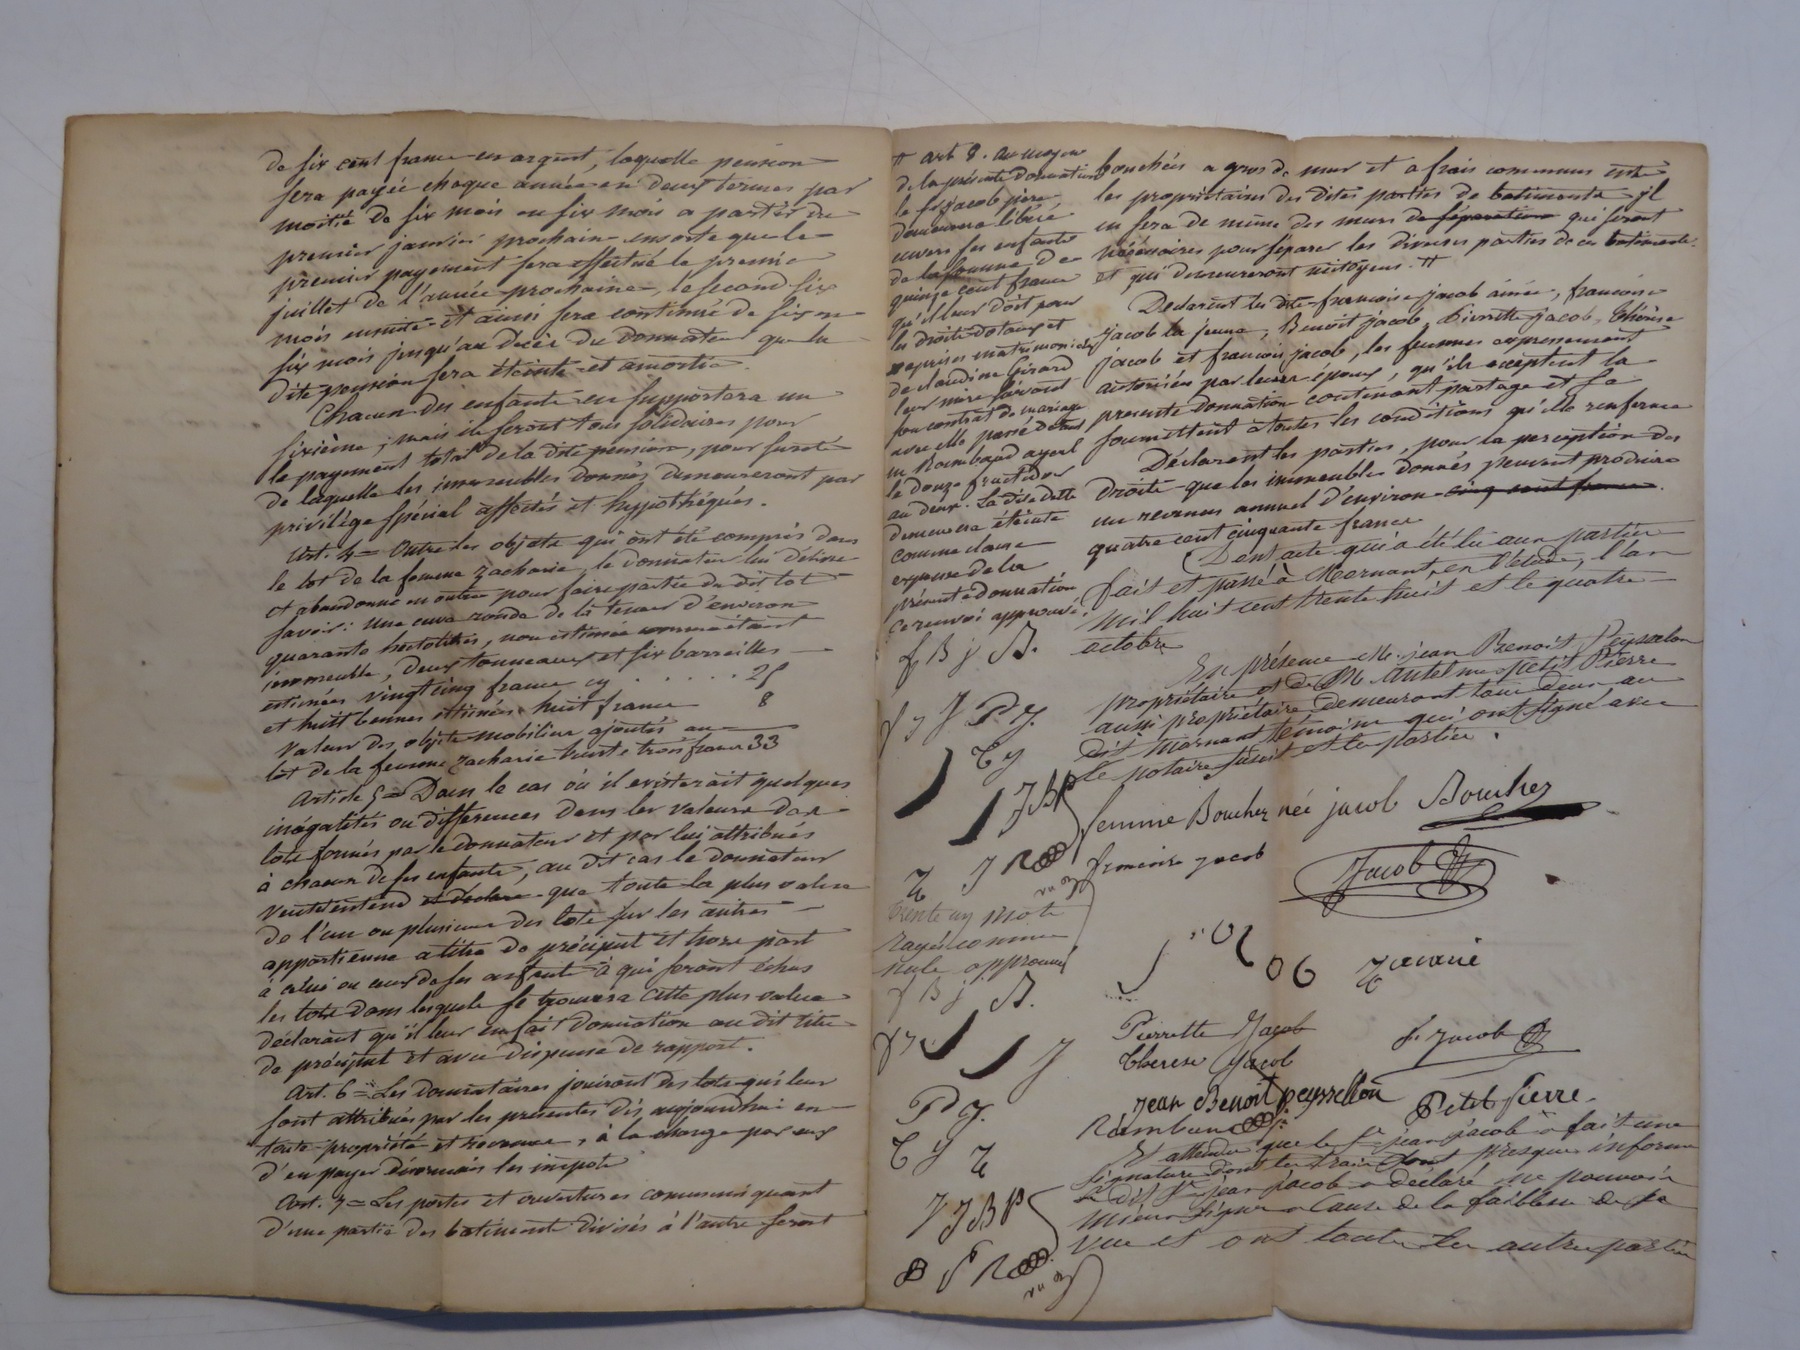 de six cent francs en argent, laquelle pension
sera payée chaque année en deux termes par
moitié de six mois en six mois a partir du
premier janvier prochain ensorte que le
premier payement sera effectué le premier
juillet de l'année prochaine, le second six
mois ensuite et ainsi sera continué de six en
six mois jusqu'au décès du donnateur que la
dite pension sera éteinte et amortie.
Chacun des enfants en supportera un
sixième, mais ils seront tous solidaires pour
le payement total de la dite pension, pour sureté
de laquelle les immeubles donnés demeureront par
privilège spécial affectés et hyppothéqués.
Art. 4 = Outre les objets qui ont été compris dans
le lot de la femme Zacharie, le donnateur lui délivre
et abandonne en outre pour faire partie du dit lot
savoir : Une cuve ronde de la teneur d'environ
quarante hectolitres, non estimée comme étant
immeuble, deux tonneaux et six barreilles
estimées vingt cinq francs cy ...... 25
et huit bennes estimées huit francs 8
Valeur des objets mobiliers ajoutés au
lot de la femme Zacharie trente trois francs 33
Article 5 = Dans le cas où il existerait quelques
inégalités ou différences dans les valeurs des
lots formés par le donnateur et par lui attribués
à chacun de ses enfants, au dit cas le donnateur
veut et entend et déclare que toute la plus value
de l'un ou plusieurs des lots sur les autres
appartienne a titre de préciput et hors part
à celui ou ceux de ses enfants à qui seront échus
les lots dans lesquels se trouvera cette plus value
déclarant qu'il leur en fait donnation au dit titre
de préciput et avec dispense de rapport.
Art. 6 = Les donnataires jouiront des lots qui leur
sont attribués par les présentes dès aujourdhui en
toute propriété et revenus, à la charge par eux
d'en payer désormais les impots
Art. 7 = Les portes et ouvertures communiquant
d'une partie des batiments divisés à l'autre seront
# art 8. au moyen
de la présente donnation
le sr jacob père
demeurera libéré
envers ses enfants
de la somme de
quinze cent francs
qu'il leur doit pour
les droits dotaux et
reprises matrimoniales
de claudine Girard
leur mère suivant
son contrat de mariage
avec elle passé devant
me Raimbaud ayant
le douze fructidor
an deux. La dite dette
demeurera éteinte
comme clause
expresse de la
présente donnation
ce renvoi approuvé.
bouchées a gros de mur et a frais communs entre
les propriétaires des dites parties de batiments il
en sera de même des murs de séparation qui seront
nécéssaires pour séparer les diverses parties de ces batiments
et qui demeureront mitoyens. #
Déclarent les dits francoise jacob ainée, francoise
jacob la jeune, Benoit jacob, Pierrette jacob, Thérèse
jacob et francois jacob, les femmes expressement
autorisées par leurs époux, qu'ils acceptent la
présente donnation contenant partage et se
soumettent à toutes les conditions qu'elle renferme
Déclarent les parties, pour la perception des
droits que les immeubles donnés peuvent produire
un revenu annuel d'environ cinq cent francs.
quatre cent cinquante francs
Dont acte qui a été lu aux parties
fait et passé à Mornant, en l'étude, l'an
mil huit cent trente huit et le quatre
octobre
En présence M. jean Benoit Peysselon
propriétaire et de M. Antelme Petit Pierre
aussi propriétaire demeurant tous deux au
dit Mornant témoins qui ont signé avec
le notaire suivant et les parties.
f B j B.
f j J P J.
T J
J B P
Z J R
femme Boucher née jacob Boucher
francoise jacob
Jacob
trente un mots
rayés comme
nuls approuvés
f B j B.
f J J
P J.
T J Z
J J B P
B P R
Zacarie
Pierrette Jacob
Therese Jacob
f. Jacob
jean Benoit peyssellon
Petit Pierre.
Et attendu que le Sr jean jacob a fait une
signature dont les traits sont presque informes
le dit Sr jean jacob a déclaré ne pouvoir
mieux signer a cause de la faiblesse de sa
vue et ont toutes les autres parties